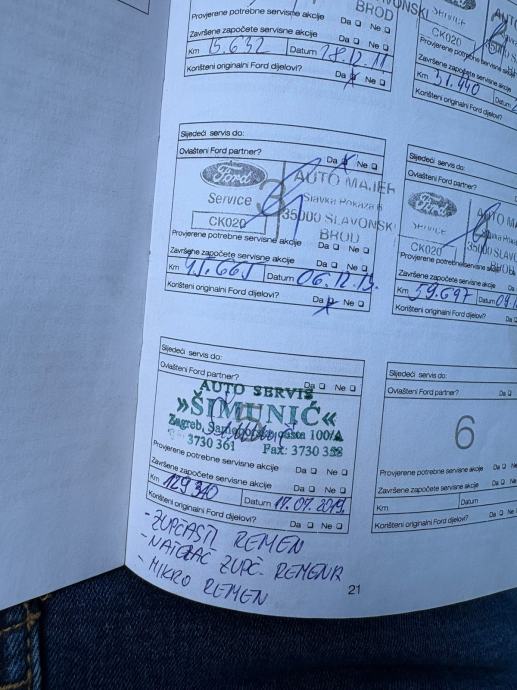 BROD
Provjerene potrebne servisne akcije Da ☐ Ne ☐
Završene započete servisne akcije Da ☐ Ne ☐
Km 15.632 Datum 28.12.11
Korišteni originalni Ford dijelovi? Da ☒ Ne ☐
SLAVONSKI
BROD
Service
CK020
Provjerene potrebne
Završene započete servisne
Km Datum
Korišteni originalni Ford dijelovi?
Slijedeći servis do:
Ovlašteni Ford partner? Da ☒ Ne ☐
Ford
Service
CK020
3
AUTO MAJER
Slavka
35000 SLAVONSKI
BROD
Provjerene potrebne servisne akcije Da ☐ Ne ☐
Završene započete servisne akcije Da ☐ Ne ☐
Km 45.661 Datum 06.12.13.
Korišteni originalni Ford dijelovi? Da ☒ Ne ☐
Slijedeći servis do:
Ovlašteni Ford partner?
Ford
Service
CK020
35000
BROD
Provjerene potrebne servisne akcije
Završene započete servisne akcije Da
Km 59.697 Datum
Korišteni originalni Ford dijelovi?
Slijedeći servis do:
Ovlašteni Ford partner? Da ☐ Ne ☐
AUTO SERVIS
»ŠIMUNIĆ«
Zagreb, 100/A
3730 361 Fax: 3730 358
Provjerene potrebne servisne akcije Da ☐ Ne ☐
Završene započete servisne akcije Da ☐ Ne ☐
Km 129340 Datum 17.07.2019.
Korišteni originalni Ford dijelovi? Da ☐ Ne ☐
- ZUPČASTI REMEN
- NATEZAČ ZUPČ. REMENA
- MIKRO REMEN
Slijedeći servis do:
Ovlašteni Ford partner? Da ☐
6
Provjerene potrebne servisne akcije Da ☐ Ne
Završene započete servisne akcije Da ☐ Ne
Km Datum
Korišteni originalni Ford dijelovi? Da ☐
21